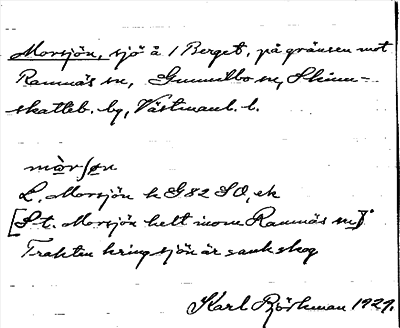 Morsjön, sjö å 1 Berget, på gränsen mot
Ramnäs sn, Gunnilbo sn, Skinn-
skatteb. bg, Västmanl. l.
mòrʃøn
L. Morsjön k G82 SO, ek
[St. Morsjön helt inom Ramnäs sn].
Trakten kring sjön är sank skog
Karl Björkman 1929.